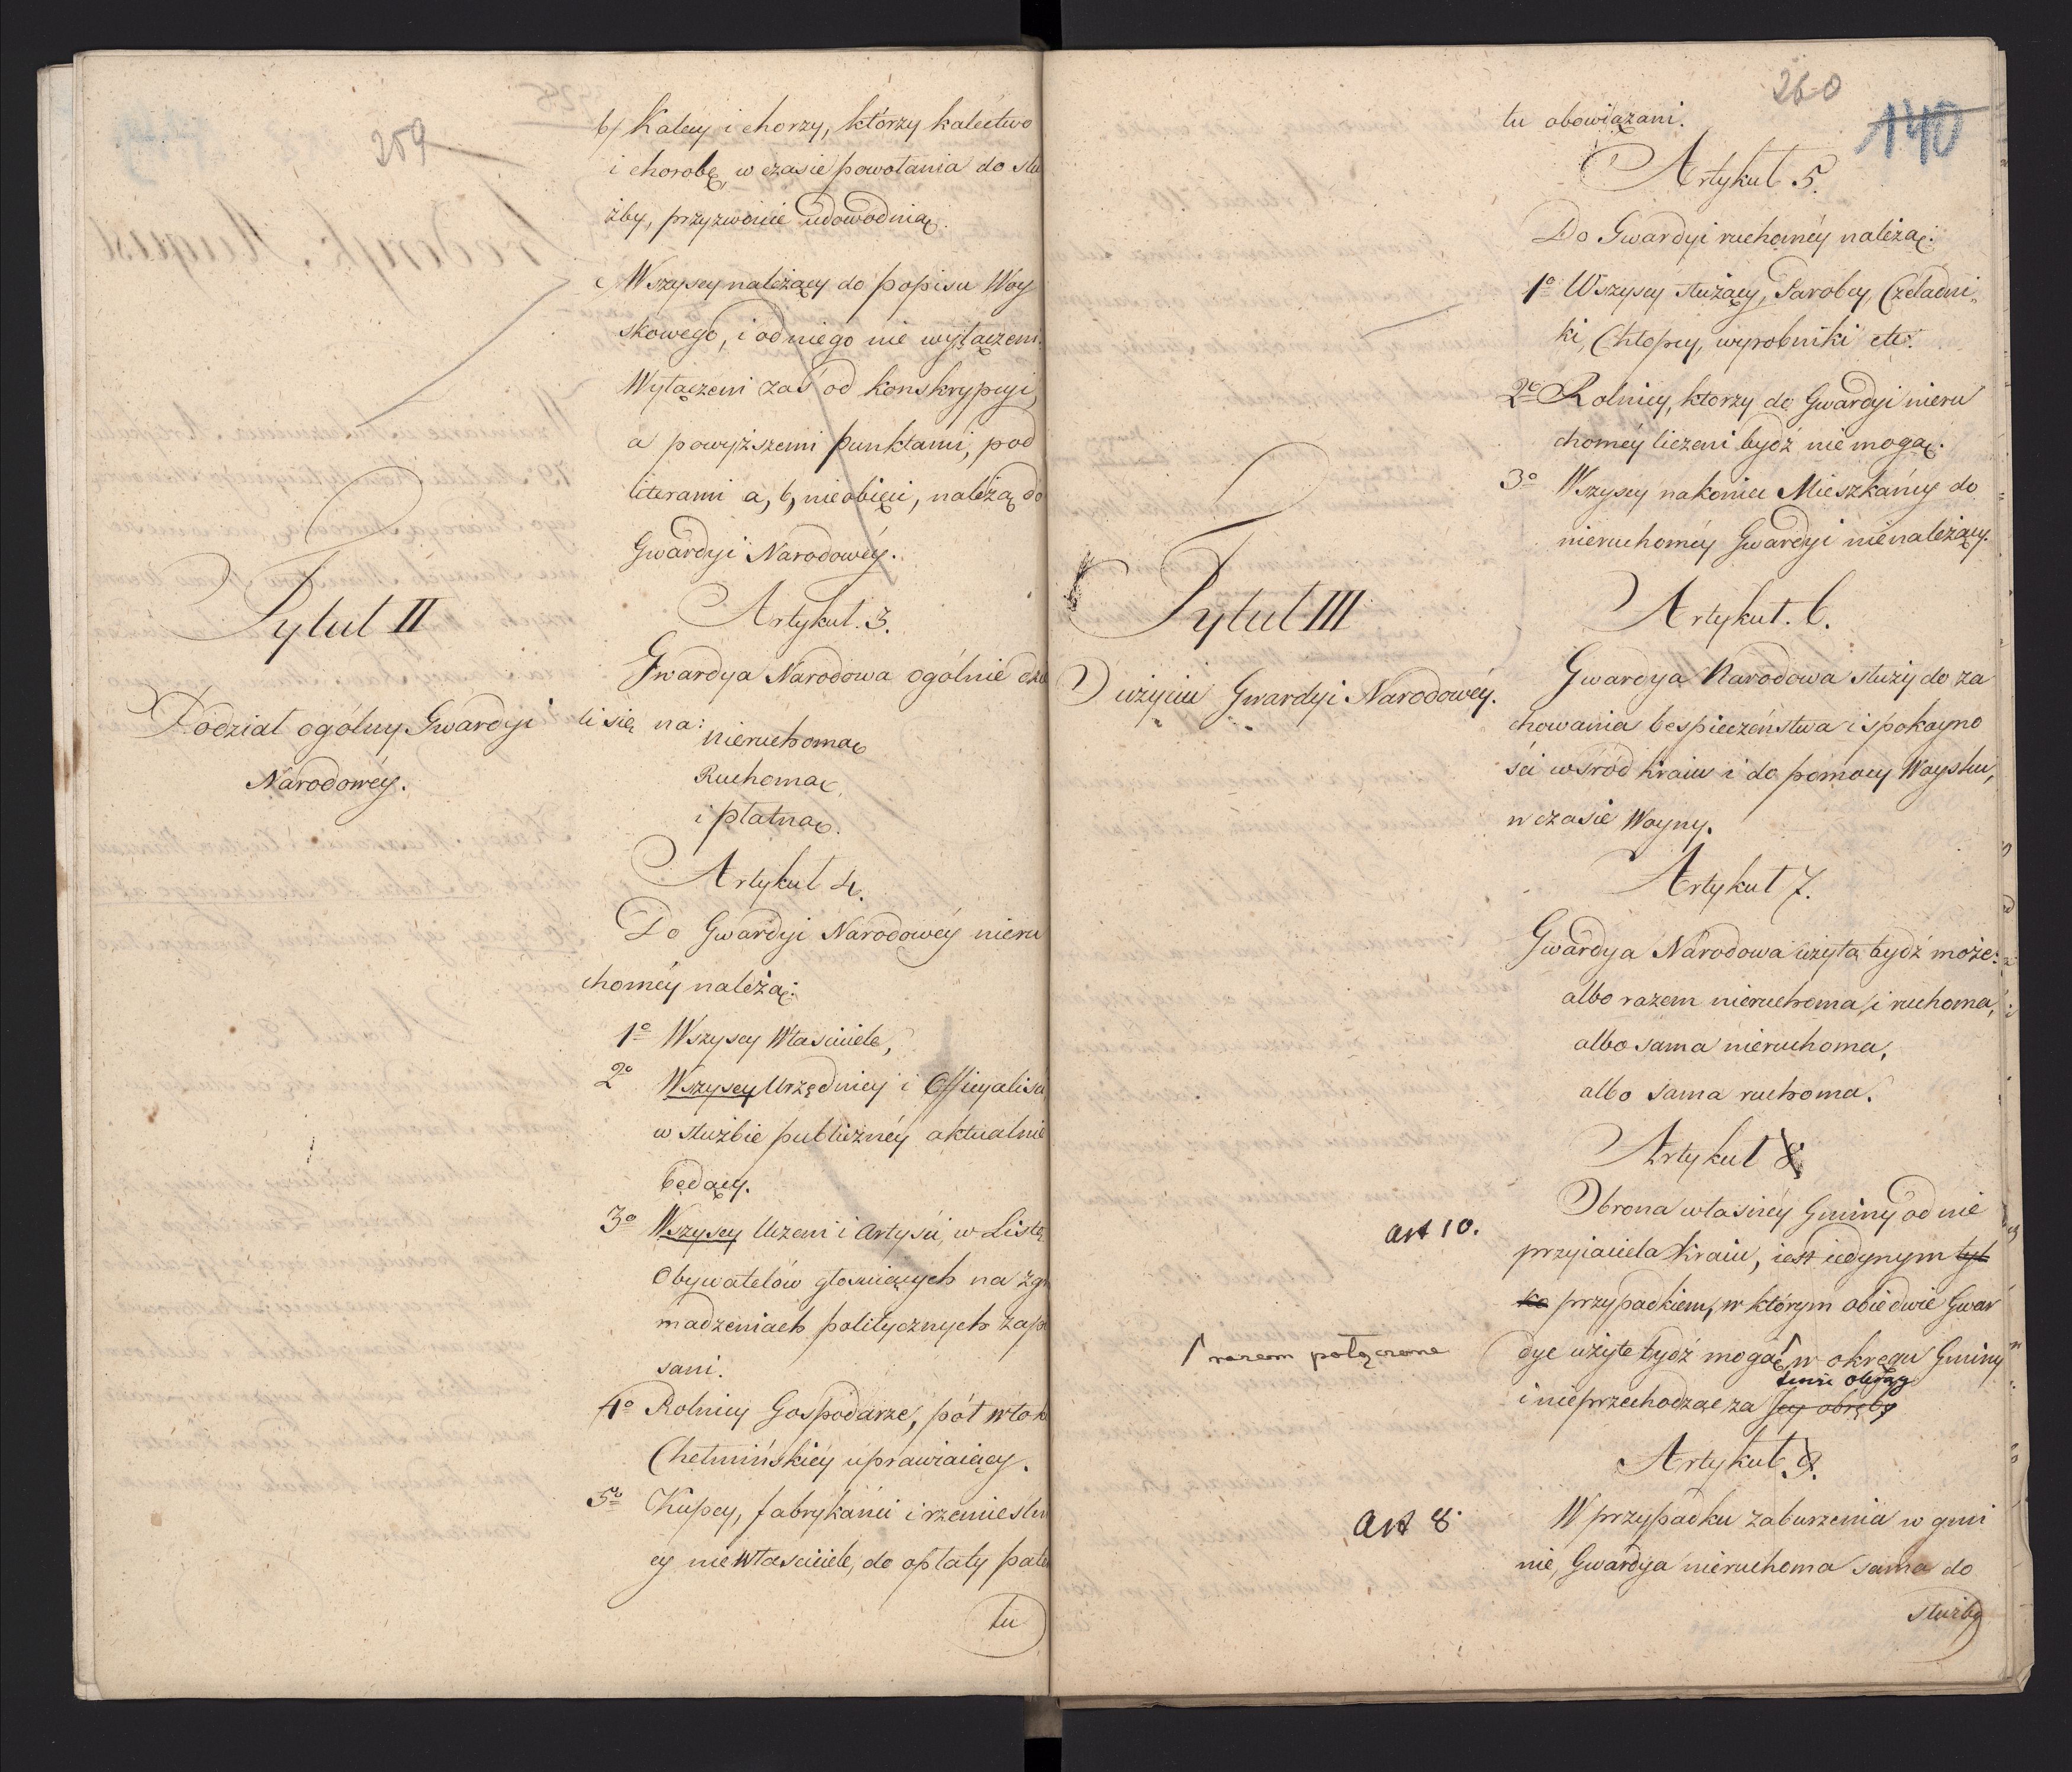 259
b/ Kalecy i chorzy, którzy kalectwo
i chorobę, w czasie powołania do słu
żby, przyzwoicie udowodnią.
c/ Wszyscy należący do popisu Woy
skowego, i od niego nie wyłączeni.
Wyłączeni zaś od konskrypcyi,
a powyższemi punktami, pod
literami a, b, nieobięci, należą do
Gwardyi Narodowéy.
Tytuł II
Podział ogólny Gwardyi
Narodowéy.
Artykuł. 3.
Gwardya Narodowa ogólnie dzie
li się na:
nieruchomą
Ruchomą
i płatną.
Artykuł 4.
Do Gwardyi Narodowéy nieru
choméy należą:
1o Wszyscy Właściciele,
2o Wszyscy Urzędnicy i Officyaliści
w służbie publicznéy aktualnie
będący.
3o Wszyscy Uczeni i Artyści, w Listę
Obywatelów głosuiących na zgro
madzeniach politycznych zapi
sani.
4o Rolnicy Gospodarze, pół włoki
Chełmińskiéy uprawiaiący.
5o Kupcy, fabrykanci i rzemieślni
cy nie Właściciele, do opłaty paten
tu
260
140
tu obowiązani.
Artykuł 5.
Do Gwardyi ruchoméy należą:
1o Wszyscy służący, Parobcy, Czeladni
ki, Chłopcy, wyrobniki etc.
2o Rolnicy, ktorzy do Gwardyi nieru
choméy liczeni bydź nie mogą.
3o Wszyscy nakoniec Mieszkańcy do
nieruchoméy Gwardyi nienależący.
Tytuł III
O użyciu Gwardyi Narodowéy.
Artykuł. 6.
Gwardya Narodowa służy do za
chowania bespieczeństwa i spokoyno
ści wśród kraiu i do pomocy Woysku,
w czasie Woyny.
Artykuł 7.
Gwardya Narodowa użytą bydź może:
albo razem nieruchoma i ruchoma,
albo sama nieruchoma,
albo sama ruchoma.
Artykuł 8
Art 10.
Obrona własnéy Gminy od nie
przyiaciela kraiu, iest iedynym tyl
ko przypadkiem, w którym obiedwie Gwar
dye użyte bydź mogą w okręgu Gminy
razem połączone
i nieprzechodząc za Jey obręby
tenże okrąg
Artykuł 9.
Art 8.
W przypadku zaburzenia w gmi
nie, Gwardya nieruchoma sama do
służby